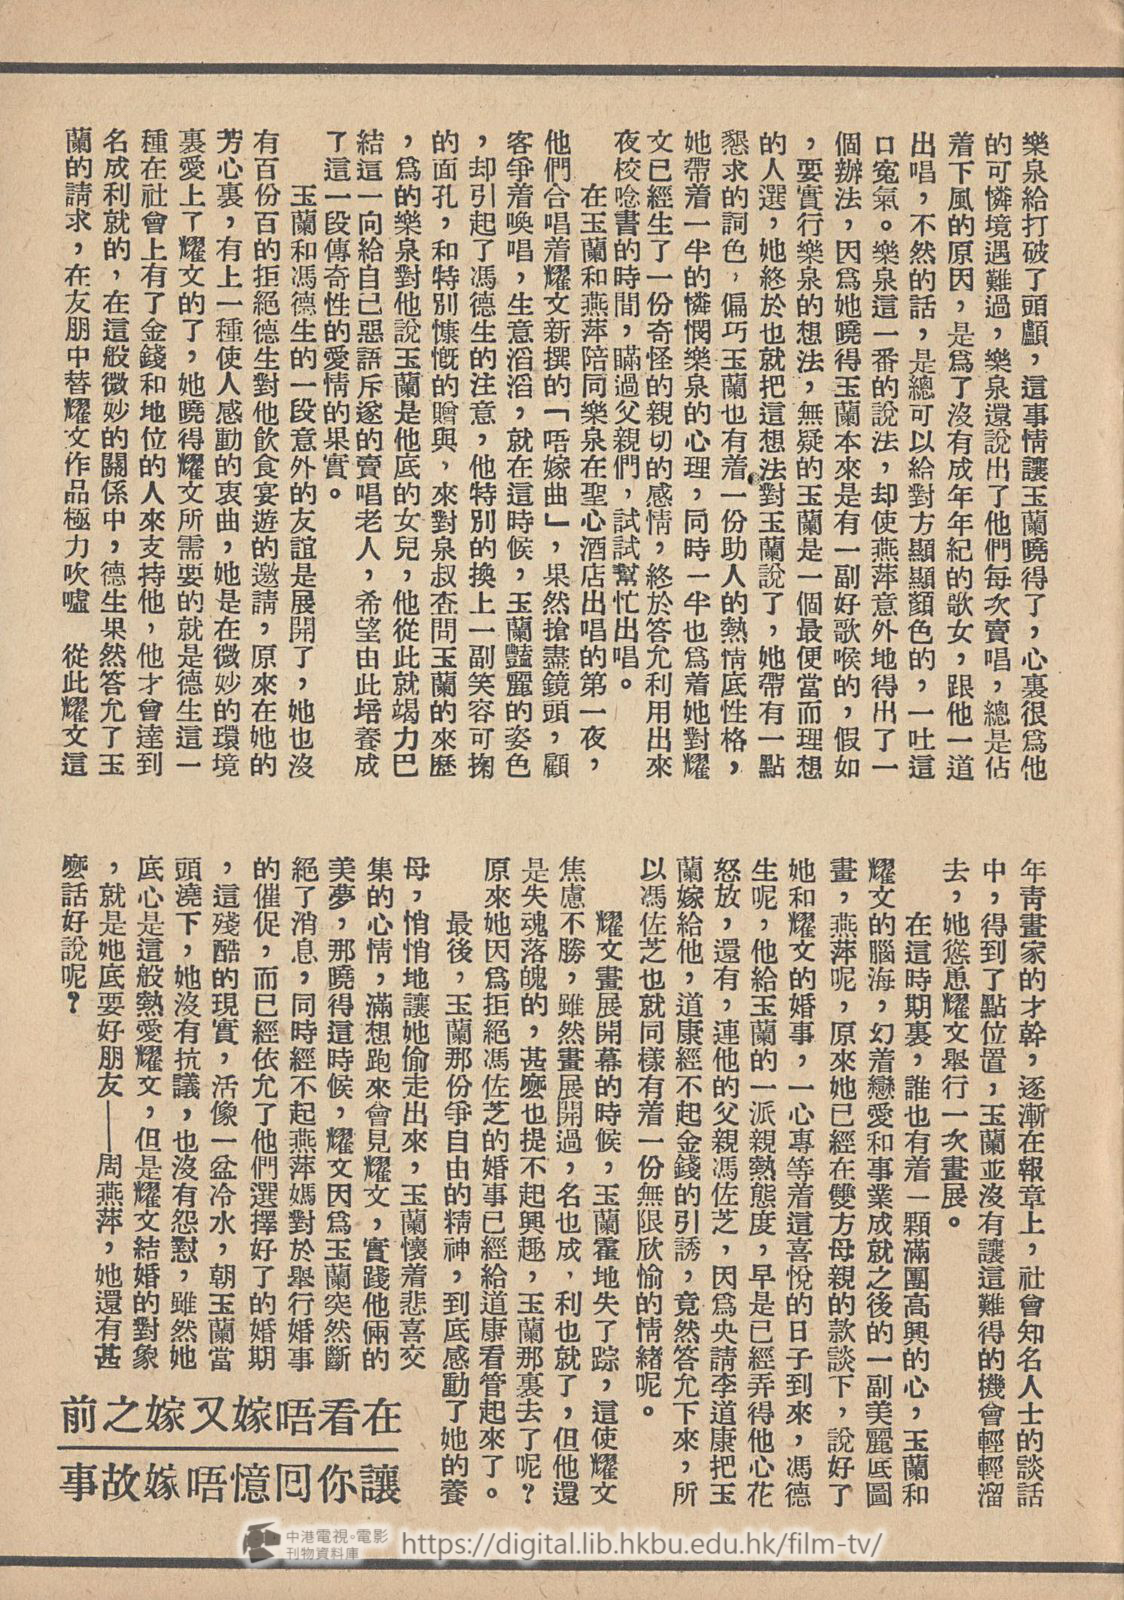 樂泉給打破了頭顱，這事情讓玉蘭曉得了，心裏很爲他
的可憐境遇難過，樂泉還說出了他們每次賣唱，總是佔
着下風的原因，是爲了沒有成年年紀的歌女，跟他一道
出唱，不然的話，是總可以給對方顯顯顏色的，一吐這
口寃氣。樂泉這一番的說法，却使燕萍意外地得出了一
個辦法，因爲她曉得玉蘭本來是有一副好歌喉的，假如
，要實行樂泉的想法，無疑的玉蘭是一個最便當而理想
的人選，她終於也就把這想法對玉蘭說了，她帶有一點
懇求的詞色，偏巧玉蘭也有着一份助人的熱情底性格，
她帶着一半的憐憫樂泉的心理，同時一半也爲着她對耀
文已經生了一份奇怪的親切的感情，終於答允利用出來
夜校唸書的時間，瞞過父親們，試試幫忙出唱。
在玉蘭和燕萍陪同樂泉在聖心酒店出唱的第一夜，
他們合唱着耀文新撰的「唔嫁曲」，果然搶盡鏡頭，顧
客爭着喚唱，生意滔滔，就在這時候，玉蘭豔麗的姿色
，却引起了馮德生的注意，他特別的換上一副笑容可掬
的面孔，和特別慷慨的贈與，來對泉叔查問玉蘭的來歷
，爲的樂泉對他說玉蘭是他底的女兒，他從此就竭力巴
結這一向給自己惡語斥遂的賣唱老人，希望由此培養成
了這一段傳奇性的愛情的果實。
玉蘭和馮德生的一段意外的友誼是展開了，她也沒
有百份百的拒絕德生對他飲食宴遊的邀請，原來在她的
芳心裏，有上一種使人感動的衷曲，她是在微妙的環境
裏愛上了耀文的了，她曉得耀文所需要的就是德生這一
種在社會上有了金錢和地位的人來支持他，他才會達到
名成利就的，在這般微妙的關係中，德生果然答允了玉
蘭的請求，在友朋中替耀文作品極力吹噓　從此耀文這
年靑畫家的才幹，逐漸在報章上，社會知名人士的談話
中，得到了點位置，玉蘭並沒有讓這難得的機會輕輕溜
去，她慫恿耀文舉行一次畫展。
在這時期裏，誰也有着一顆滿團高興的心，玉蘭和
耀文的腦海，幻着戀愛和事業成就之後的一副美麗底圖
畫，燕萍呢，原來她已經在雙方母親的款談下，說好了
她和耀文的婚事，一心專等着這喜悅的日子到來，馮德
生呢，他給玉蘭的一派親熱態度，早是已經弄得他心花
怒放，還有，連他的父親馮佐芝，因爲央請李道康把玉
蘭嫁給他，道康經不起金錢的引誘，竟然答允下來，所
以馮佐芝也就同樣有着一份無限欣愉的情緒呢。
耀文畫展開幕的時候，玉蘭霍地失了踪，這使耀文
焦慮不勝，雖然畫展開過，名也成，利也就了，但他還
是失魂落魄的，甚麼也提不起興趣，玉蘭那裏去了呢？
原來她因爲拒絕馮佐芝的婚事已經給道康看管起來了。
最後，玉蘭那份爭自由的精神，到底感動了她的養
母，悄悄地讓她偷走出來，玉蘭懷着悲喜交
集的心情，滿想跑來會見耀文，實踐他倆的
美夢，那曉得這時候，耀文因爲玉蘭突然斷
絕了消息，同時經不起燕萍媽對於舉行婚事
的催促，而已經依允了他們選擇好了的婚期
，這殘酷的現實，活像一盆冷水，朝玉蘭當
頭澆下，她沒有抗議，也沒有怨懟，雖然她
底心是這般熱愛耀文，但是耀文結婚的對象
，就是她底要好朋友——周燕萍，她還有甚
麽話好說呢？
在看唔嫁又嫁之前
讓你囘憶唔嫁故事
中港電視·電影
刊物資料庫
https://digital.lib.hkbu.edu.hk/film-tv/